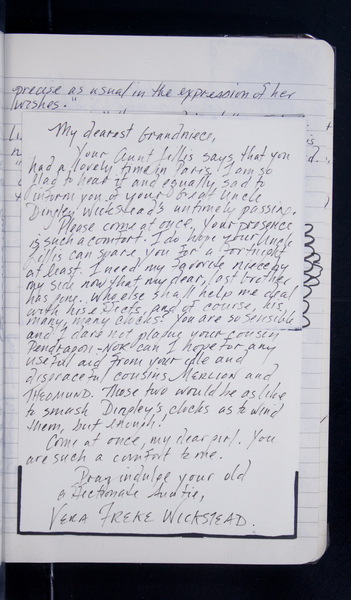 precise as usual in the expression of her
wishes."
My dearest Grandniece,
Your Aunt Fillis says that you
had a lovely time in Paris. I am so
glad to hear it and equally sad to
inform you of your Great Uncle
Dingley Wickstead's untimely passing.
Please come at once, your presence
is such a comfort. I do hope your Uncle
Fillis can spare you for a fortnight
at least. I need my favorite niece by
my side now that my dear, last brother
has gone. Who else shall help me deal
with his effects, and of course, his
many, many clocks? You are so sensible
and I dare not plague your cousin
nor can I hope for any
useful aid from your idle and
disgraceful cousins MERLION and
THEDMUND. Those two would be as like
to smash Dingley's clocks as to wind
them, but enough!
Come at once, my dear girl. You
are such a comfort to me.
Pray indulge your old
affectionate Auntie,
VERA FREKE WICKSTEAD.